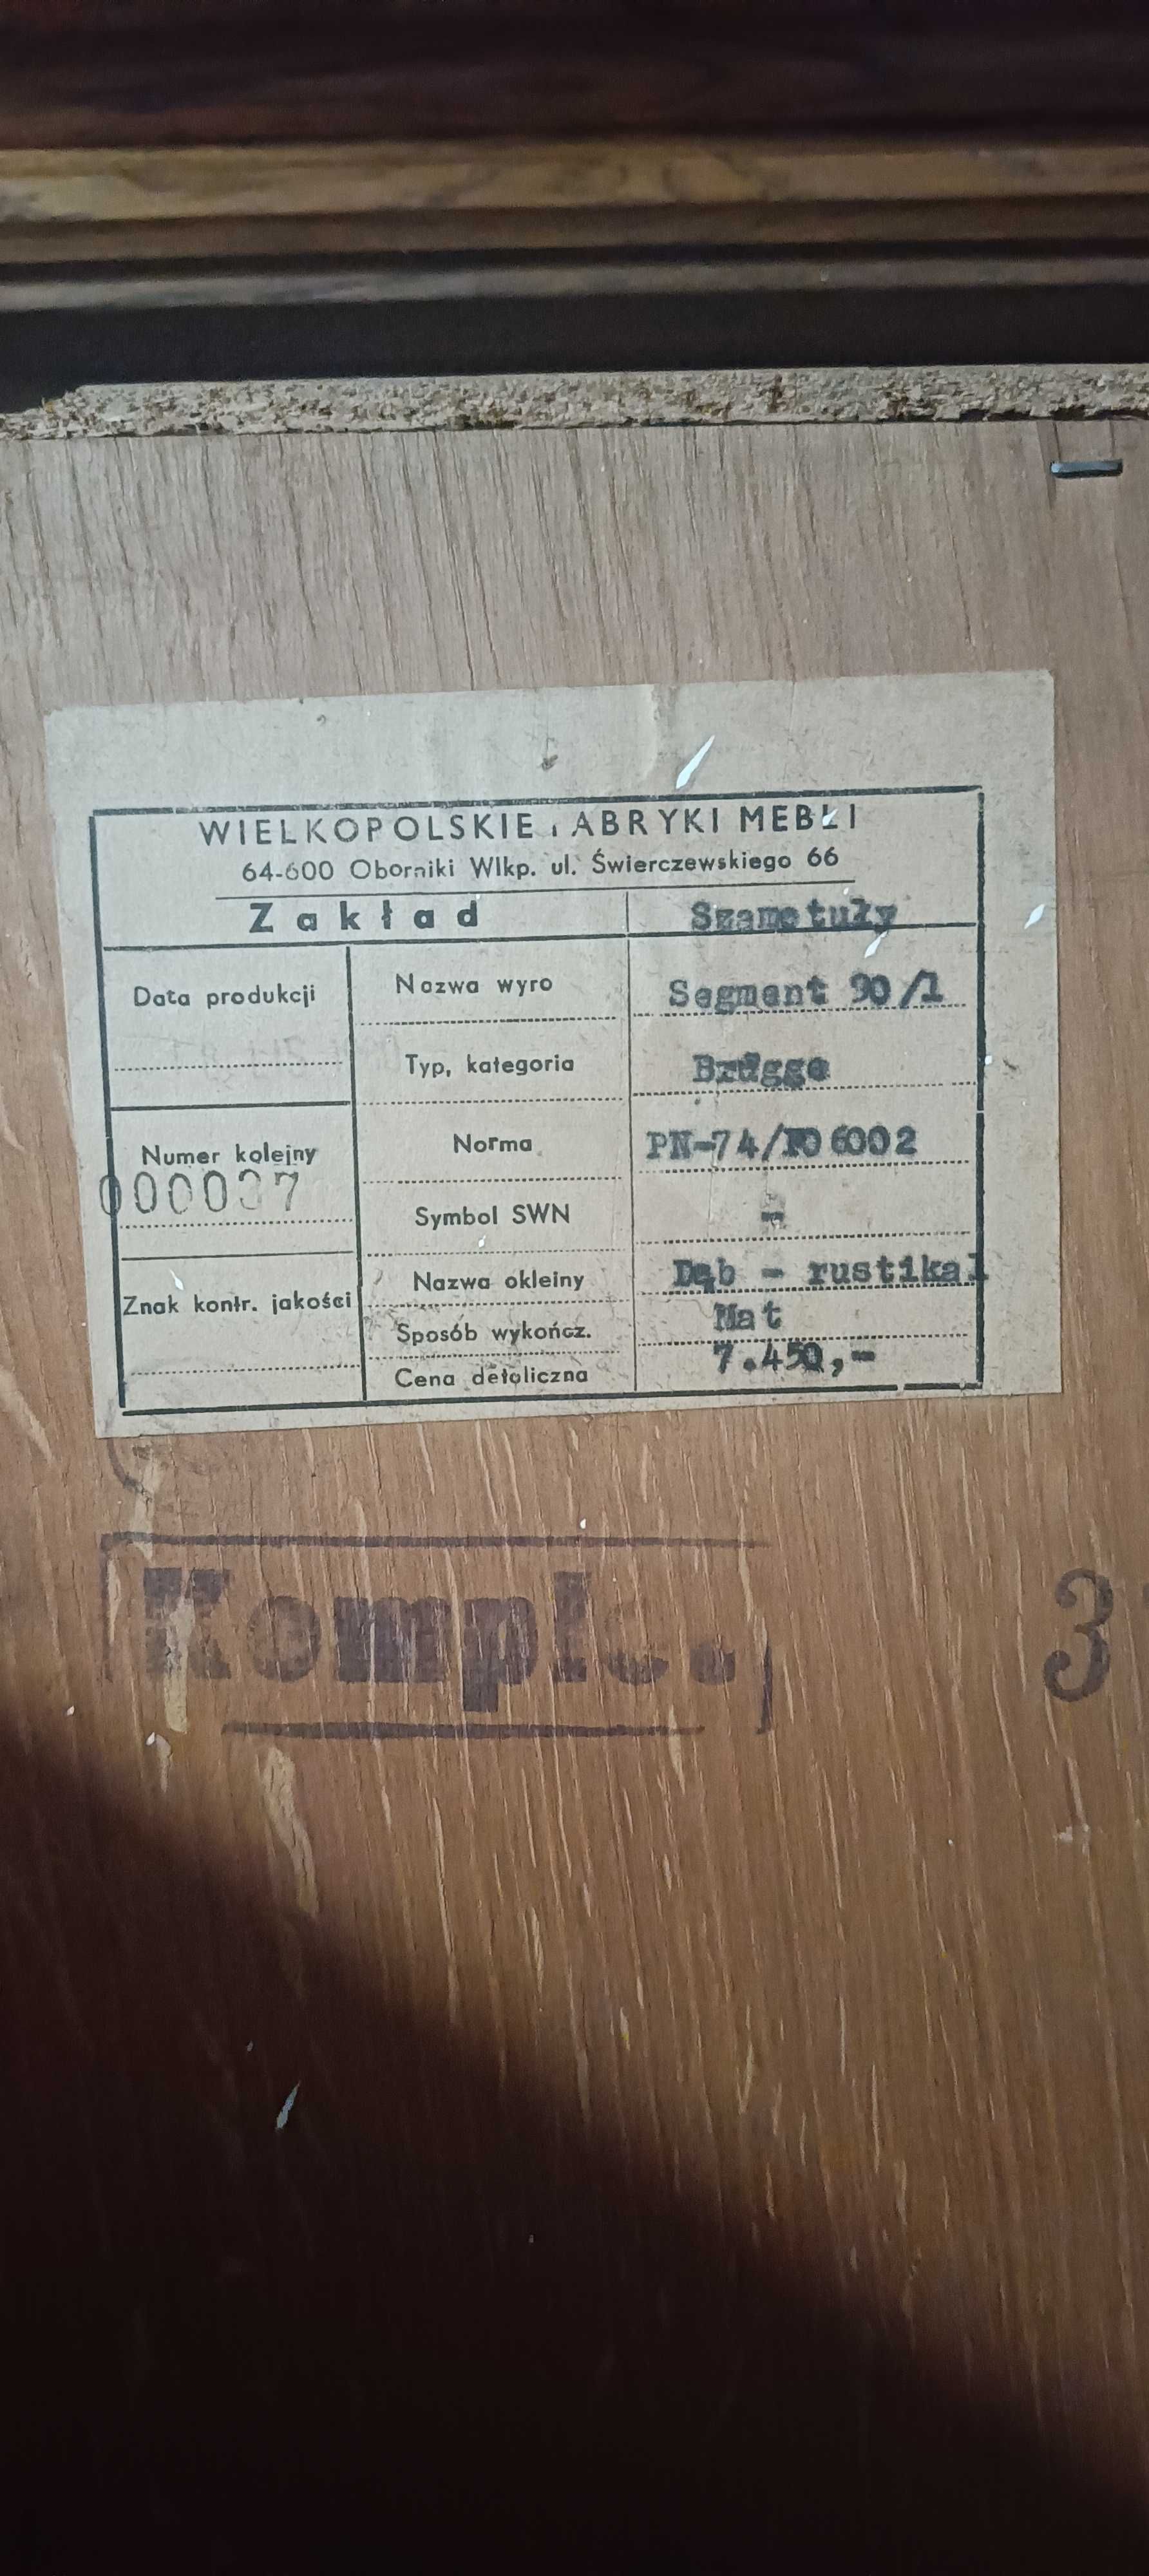 WIELKOPOLSKIE FABRYKI MEBLI
64-600 Oborniki Wlkp. ul. Świerczewskiego 66
Zakład Szamotuły
Data produkcji
Numer kolejny
000037
Znak kontr. jakości
Nazwa wyro Segment 90/1
Typ, kategoria Brügge
Norma PN-74/F06002
Symbol SWN -
Nazwa okleiny Dąb - rustikal
Sposób wykończ. Mat
Cena detaliczna 7.450,-
Komple.
3